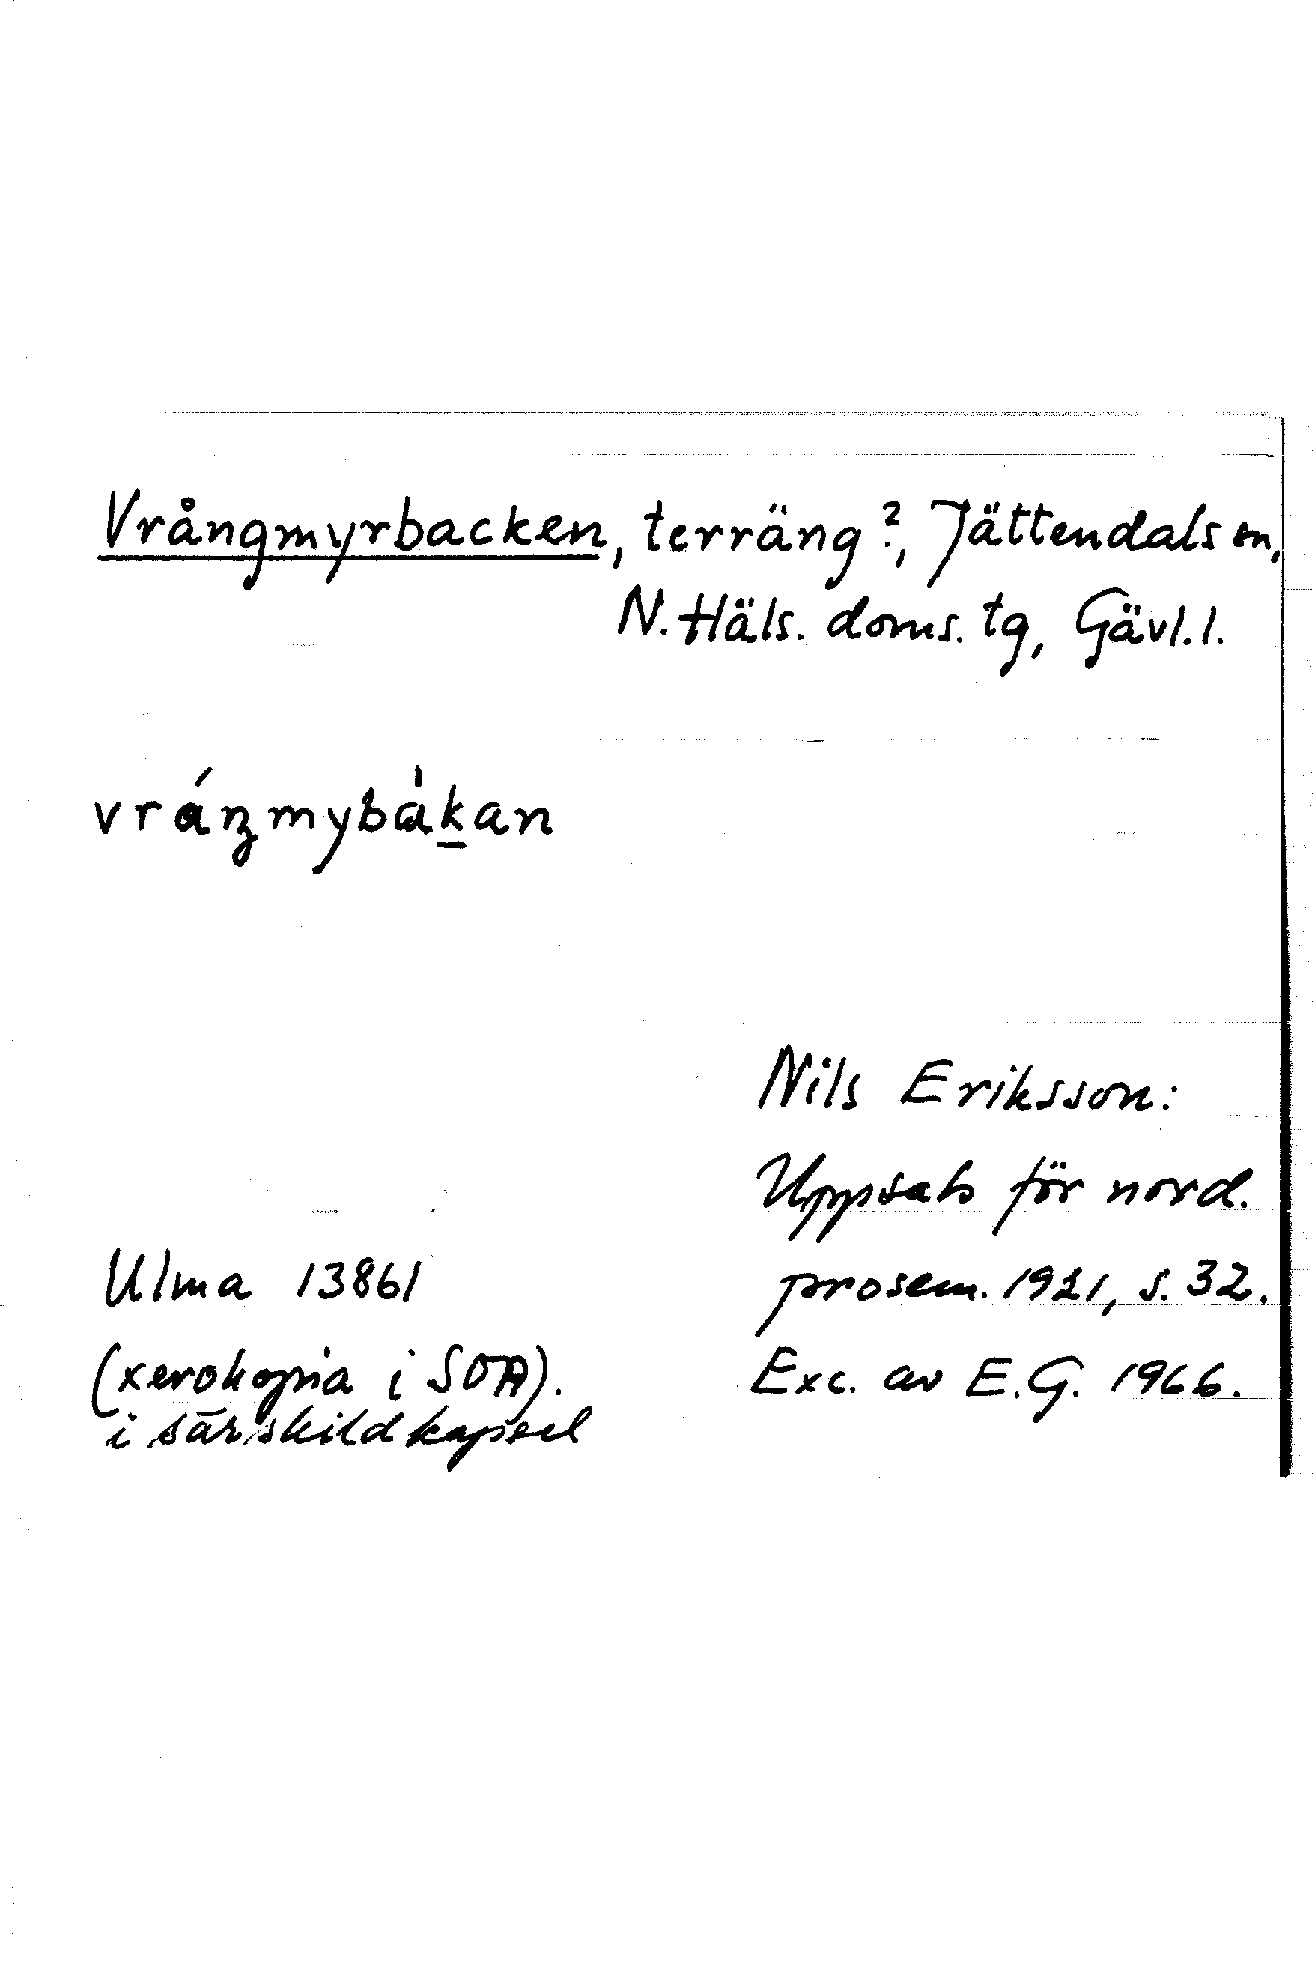 Vrångmyrbacken, terräng?, Jättendals sn,
N. Häls. doms. tg, Gävl. l.
vráŋmybàkan
Nils Eriksson:
Uppsats för nord.
prosem. 1921, s. 32.
Exc. av E.G. 1966.
Ulma 13861
(xerokopia i SOA).
i särskild kapsel